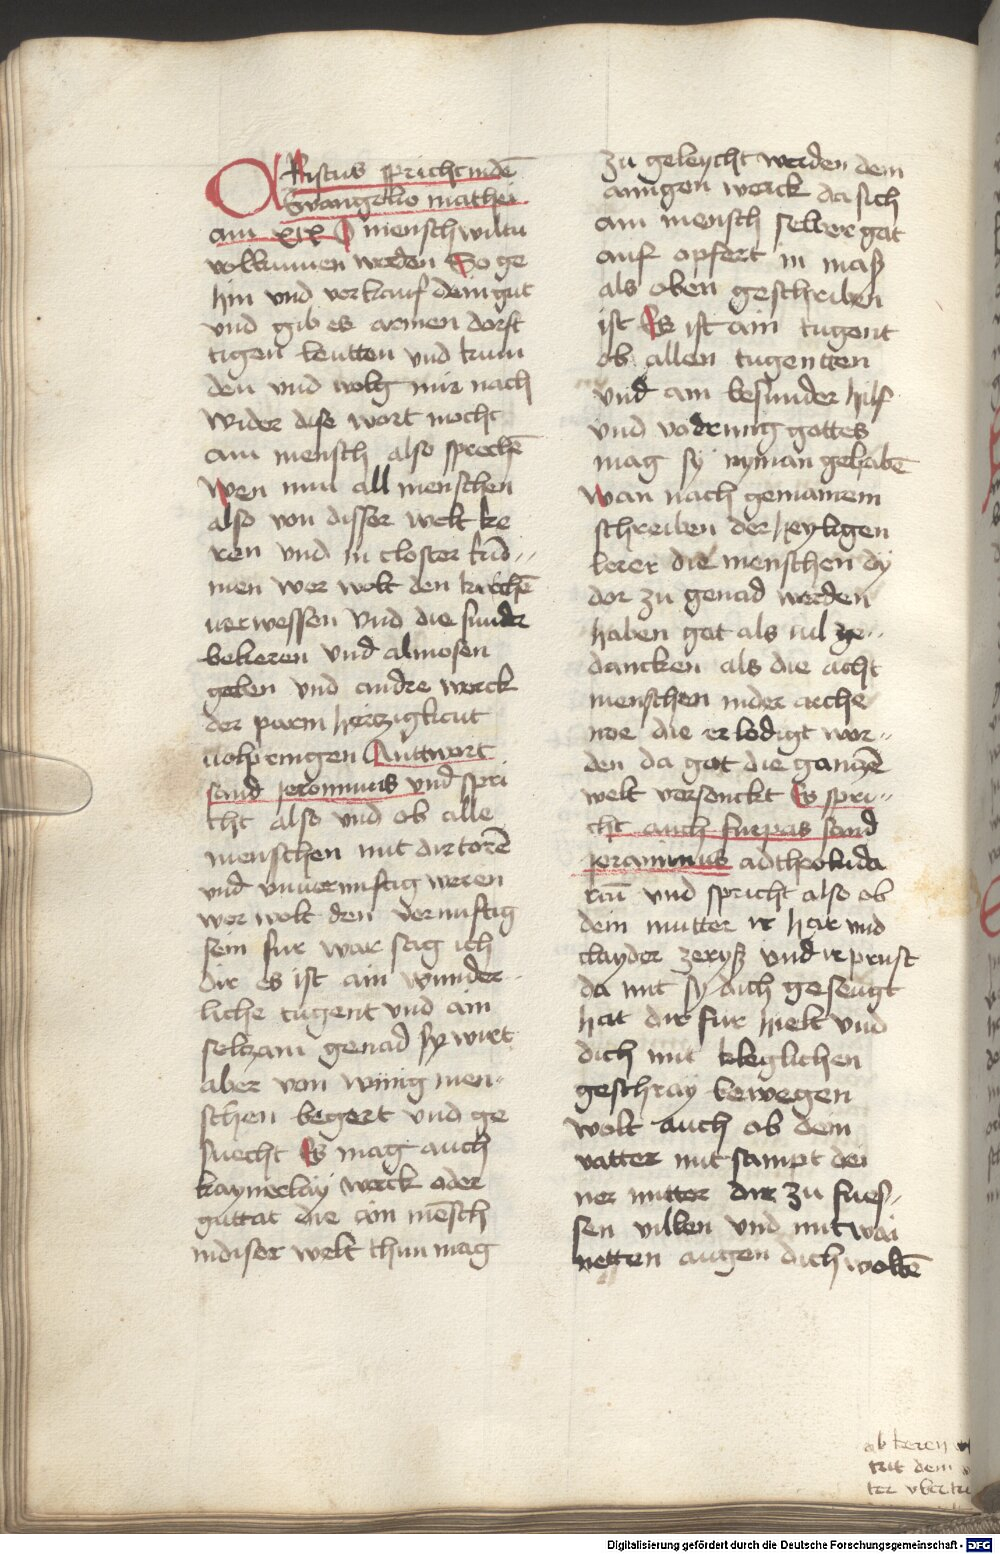 Cristus spricht in dē
Ewangelio mathei
am xix O mensch wiltu
volkumen werden So ge
hin und verkauf dein gut
und gib es armen dorft
tigen leutten und kum
den und wolg mir nach
Wider dise wort mocht
ain mensch also sprechē
Wen nun all menschen
also von disser welt ke
ren und in closter kūd
men wer wolt den kirchē
uerwessen Und die sunder
bekeren und almosen
geben und andre werck
der parmhertzigkait
uolpringen Antwort
sand jeronimus und spri
cht also und ob alle
menschen mit dir torē
und unuernuftig weren
wer wolt den vernuftig
sein fur war sag ich
dir es ist ain wunder
liche tugent und ain
seltzam genad sy wirt
aber von winig men
schen begert und ge
suecht Es mag auch
kaynerlay werck oder
guttat die ain mēsch
in diser welt thun mag
zu geleycht werden dem
ainigen werck da sich
ain mensch selber got
auf opfert in maß
als oben geschriben
ist Es ist ain tugent
ob allen tugentten
und ain besunder hilf
und vodrung gottes
mag sy nyman gehabē
wan nach gemainem
schreiben der heyligen
lerer die menschen dy
der zu genad werden
haben got als uil ge
dancken als die acht
menschen in der arche
noe die erlodigt wor
den da got die ganczē
welt versenckt Es spri
cht auch furpas sand
jeranimus ad theoluda
riū und spricht also ob
dein mutter ir har und
clayder zeryß und ir prust
da mit sy dich geseugt
hat dir fur hielt und
dich mit kleglichen
geschray bewegen
wolt auch ob dein
vatter mit sampt dei
ner mutter dir zu fues
sen uillen und mit wai
netten augen dich woltē
ab keren
trit dem
ter vbertri
Digitalisierung gefördert durch die Deutsche Forschungsgemeinschaft - DFG